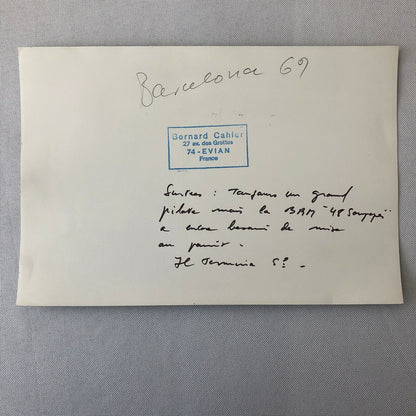 Barcelona 69
Bernard Cahier
27 av. des Grottes
74 - EVIAN
France
Surtees : Toujours un grand
pilote mais la BRM "48 Soupapes"
a encore besoin de mise
au point.
Il termina 5e.